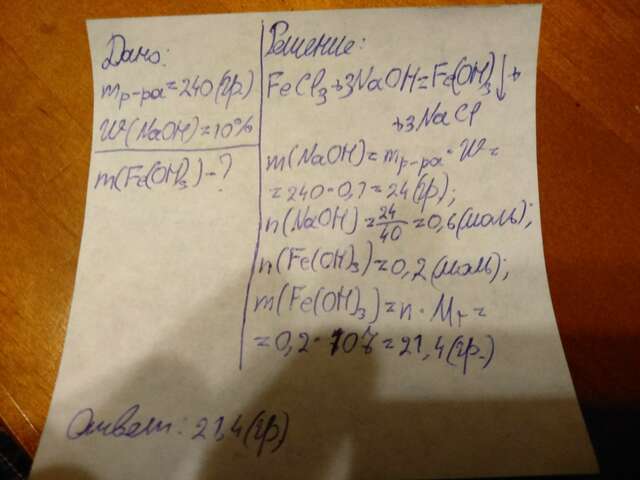 Дано:
m р-ра = 240 (гр)
W(NaOH) = 10%
m(Fe(OH)₃) - ?
Решение:
FeCl₃ + 3NaOH = Fe(OH)₃↓ +
+ 3NaCl
m(NaOH) = m р-ра · W =
= 240 · 0,1 = 24 (гр);
n(NaOH) = 24/40 = 0,6 (моль);
n(Fe(OH)₃) = 0,2 (моль);
m(Fe(OH)₃) = n · Mr =
= 0,2 · 107 = 21,4 (гр.)
Ответ: 21,4 (гр)